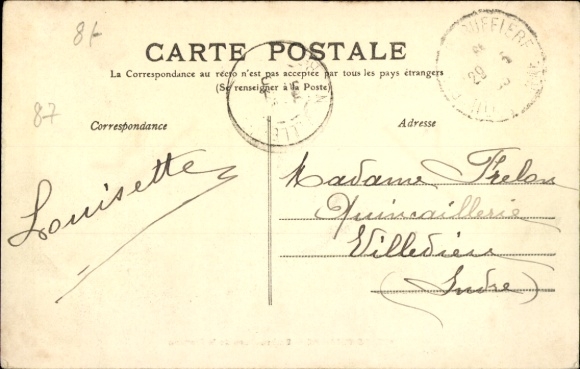 8/-
CARTE POSTALE
La Correspondance au recto n'est pas acceptée par tous les pays étrangers
(Se renseigner à la Poste)
87
Correspondance
Adresse
Louisette
Madame Frelon
Quincaillerie
Villedieu
(Indre)